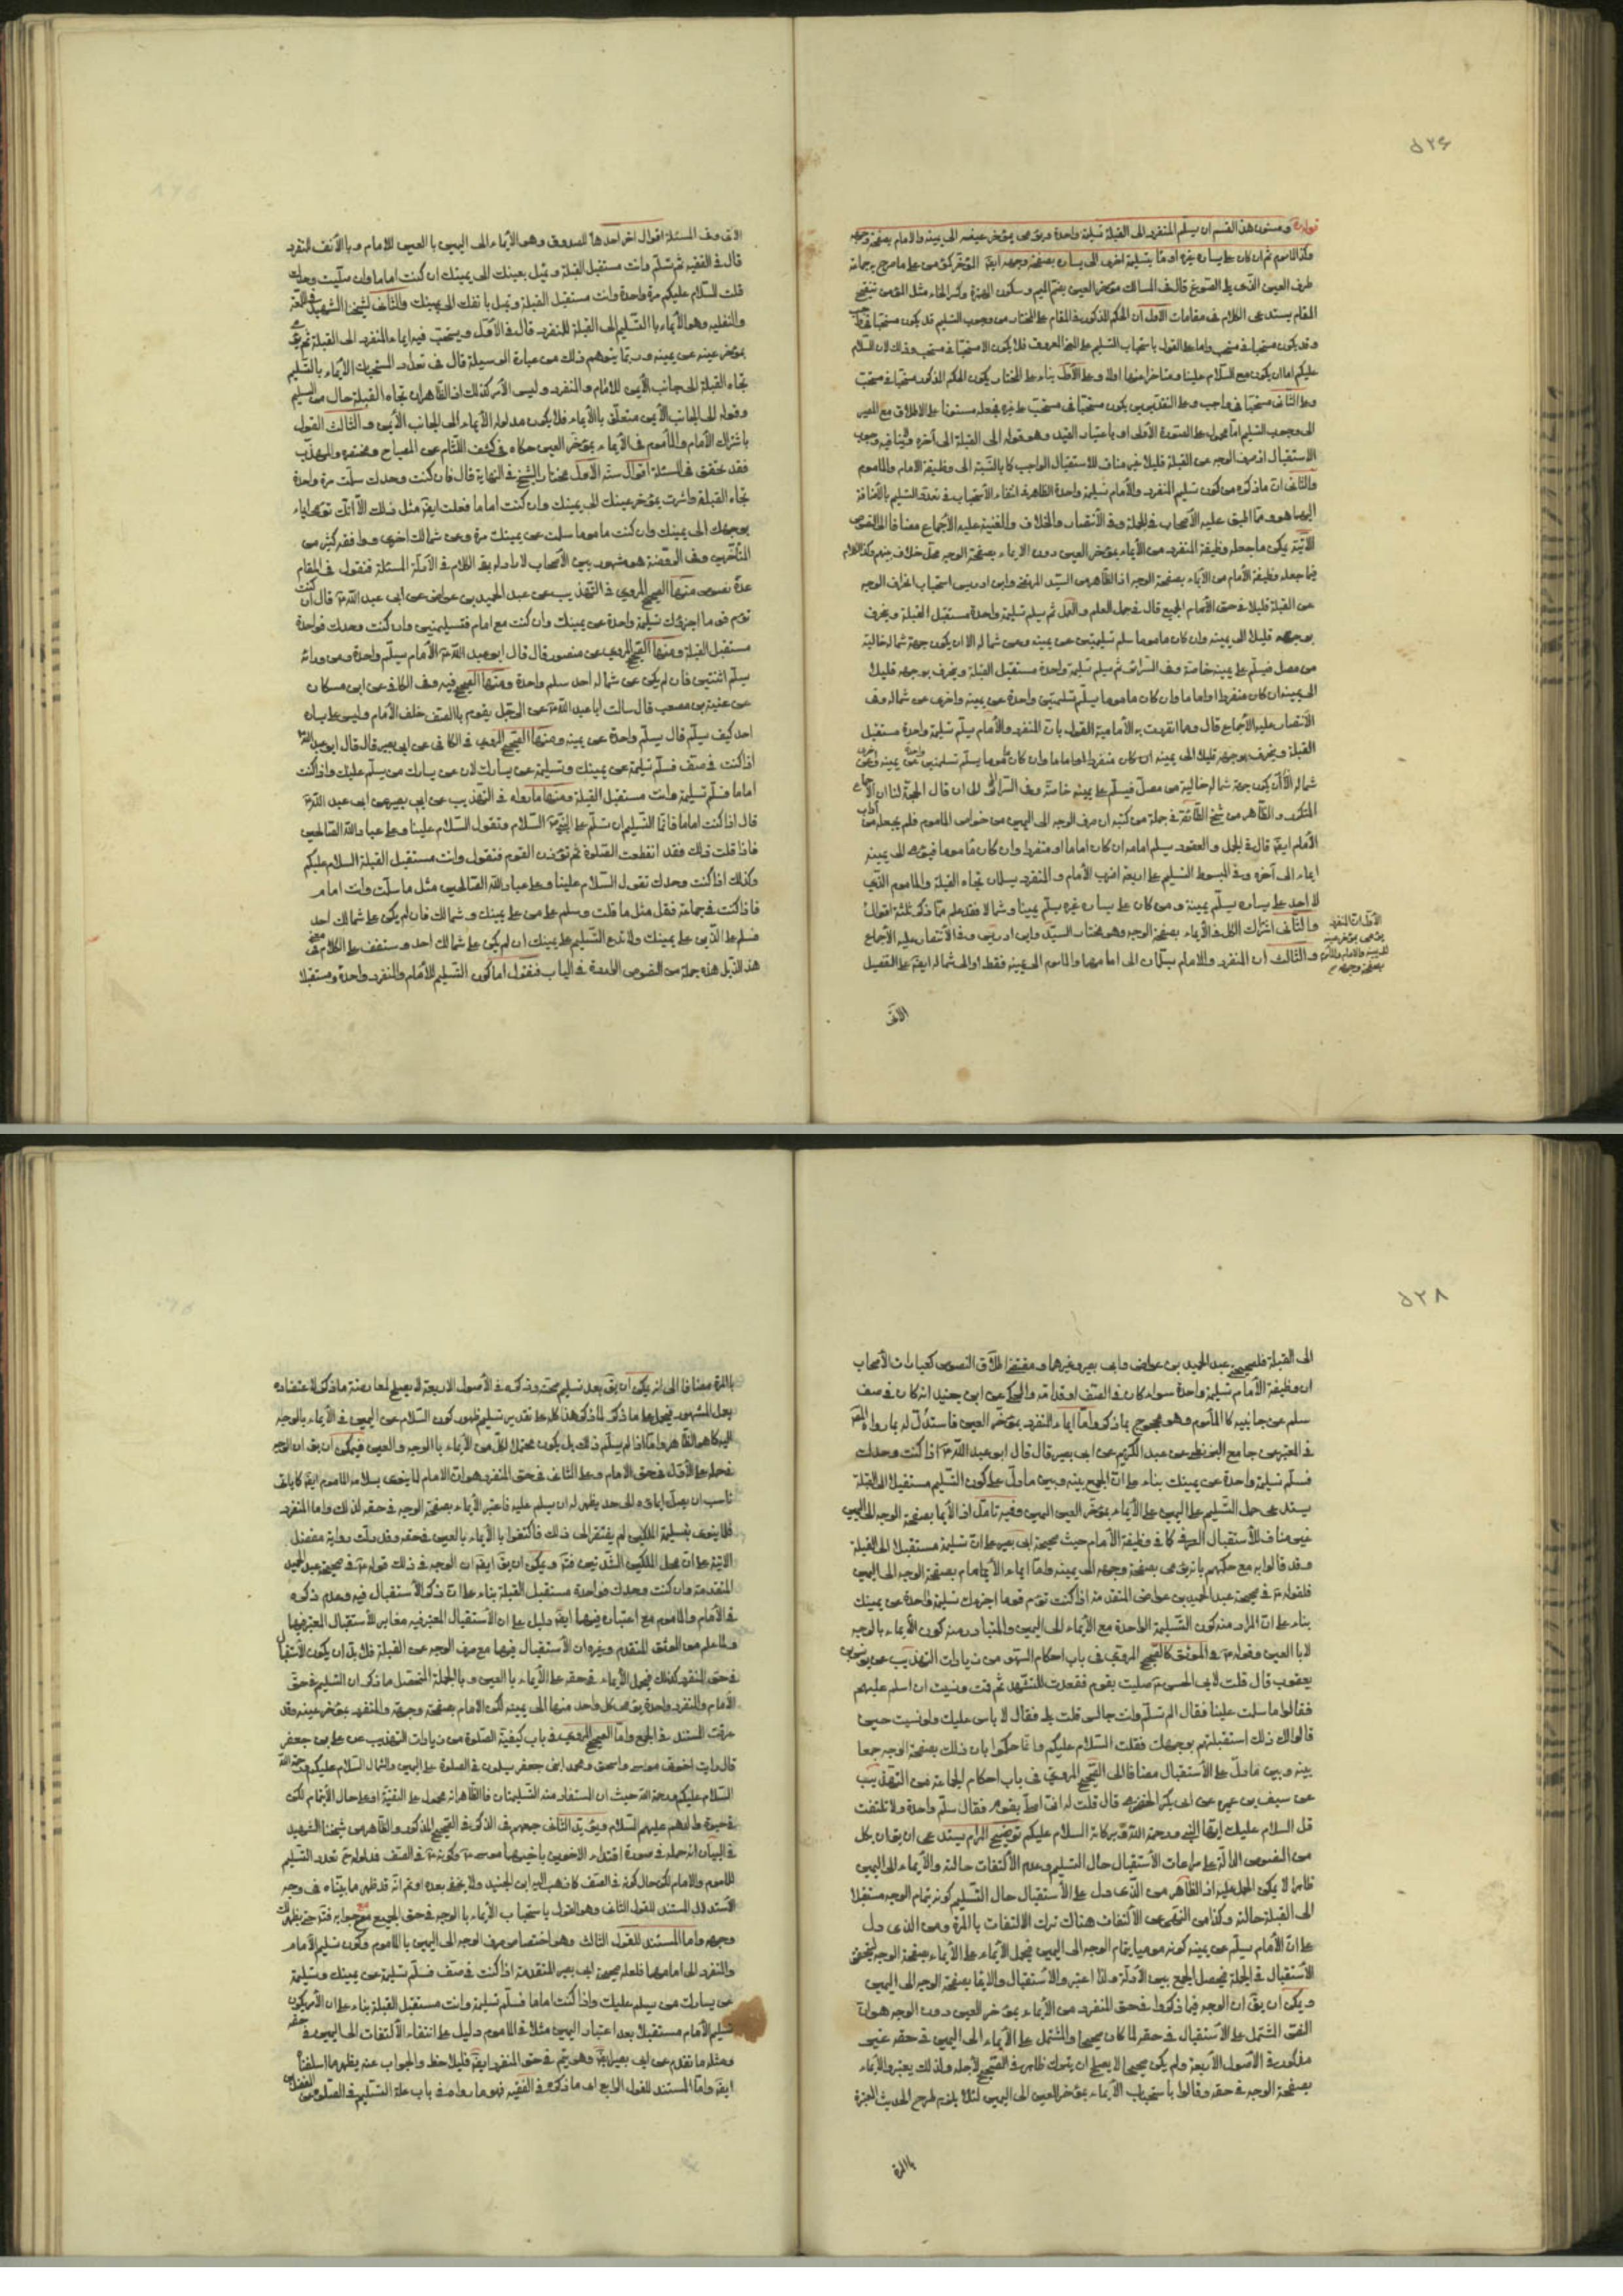 ۵۲۶
قوله ومسنون هذا القسم ان يسلم المنفرد الى القبلة تسليمة واحدة ويؤمى بمؤخر عينيه الى يمينه والامام بصفحة وجهه
وكذا المأموم ثم ان كان على يساره غيره اومأ بتسليمة اخرى الى يساره بصفحة وجهه ايضا المؤخر كمؤمن على ما صرح به جماعة
طرف العين الذى يلى الصدغ قال فى المسالك مؤخر العين بضم الميم وسكون الهمزة وكسر الخاء مثل المؤمن تنقيح
المقام يستدعى الكلام فى مقامات الاول ان الحكم المذكور فى المقام على المختار من وجوب التسليم قد يكون مستحبا فى واجب
وقد يكون مستحبا فى مستحب واما على القول باستحباب التسليم على النحو المعروف فلا يكون الا مستحبا فى مستحب وذلك لان السلام
عليكم اما ان يكون مع السلام علينا ومتاخرا عنها اولا وعلى الاول بناء على المختار يكون الحكم المذكور مستحبا فى مستحب
وعلى الثانى مستحبا فى واجب وعلى التقديرين يكون مستحبا فى مستحب على غيره فجعله مسنونا على الاطلاق مع المصير
الى وجوب التسليم اما محمول على الصورة الاولى او باعتبار القيد وهو قوله الى القبلة الى آخره ولا ينافيه وجوب
الاستقبال اذ صرف الوجه عن القبلة قليلا غير مناف للاستقبال الواجب كما بالنسبة الى وظيفة الامام والماموم
والثانى ان ما ذكره من كون تسليم المنفرد والامام تسليمة واحدة الظاهر فى انتفاء الاستحباب فى تعدد التسليم بالاضافة
اليهما هو مما اطبق عليه الاصحاب فى الجملة وفى الانتصار والخلاف والغنية عليه الاجماع مضافا الى النصوص
الآتية لكن ما جعله وظيفة المنفرد من الايماء بمؤخر العين دون الايماء بصفحة الوجه محل خلاف بينهم وكذا الكلام
فيما جعله وظيفة الامام من الايماء بصفحة الوجه اذ الظاهر من السيد المرتضى وابن ادريس استحباب انحراف الوجه
عن القبلة قليلا فى حق الامام الجميع قال فى جمل العلم والعمل ثم يسلم تسليمة واحدة مستقبل القبلة وينحرف
بوجهه قليلا الى يمينه وان كان ماموما سلم تسليمتين عن يمينه وعن شماله الا ان يكون جهة شماله خالية
من مصل فيسلم على يمينه خاصة وفى السرائر ثم يسلم تسليمة واحدة مستقبل القبلة وينحرف بوجهه قليلا
الى يمينه ان كان منفردا او اماما وان كان ماموما يسلم تسليمتين واحدة عن يمينه واخرى عن شماله وفى
الانتصار عليه الاجماع قال ومما انفردت به الامامية القول بان المنفرد والامام يسلم تسليمة واحدة مستقبل
القبلة وينحرف بوجهه قليلا الى يمينه ان كان منفردا او اماما وان كان ماموما يسلم تسليمتين واحدة عن يمينه واخرى عن
شماله الا ان يكون جهة شماله خالية من مصل فيسلم على يمينه خاصة وفى السرائر الى ان قال الحجة لنا ان الاجماع
المتكرر والظاهر من شيخ الطائفة فى جملة من كتبه ان صرف الوجه الى اليمين من خواص الماموم فلم يجعله من آداب
الامام ايضا قال فى الجمل والعقود يسلم امامه ان كان اماما او منفردا وان كان ماموما فيؤمى الى يمينه
ايماء الى آخره وفى المبسوط التسليم على اربعة اضرب الامام والمنفرد يسلمان تجاه القبلة والماموم الذى
لا احد على يساره يسلم يمينه ومن كان على يساره غيره يسلم يمينا وشمالا فقد علم مما ذكر ثلثة اقوال
والثانى اشتراك الكل فى الايماء بصفحة الوجه وهو مختار السيد وابن ادريس وفى الانتصار عليه الاجماع
والثالث ان المنفرد والامام يسلمان الى امامهما والماموم الى يمينه فقط او الى شماله ايضا على التفصيل
الاول ان المنفرد
يؤمى بمؤخر عينه
الى يمينه والامام والماموم
بصفحة وجهه
الآتى
الآتى وفى المسئلة اقوال اخر احدها للصدوق وهو الايماء الى اليمين بالعين للامام وبالانف للمنفرد
قال فى الفقيه ثم تسلم وانت مستقبل القبلة وتميل بعينك الى يمينك ان كنت اماما وان صليت وحدك
قلت السلام عليكم مرة واحدة وانت مستقبل القبلة وتميل بانفك الى يمينك والثانى لشيخنا الشهيد فى اللمعة
والنفلية وهو الايماء بالتسليم الى القبلة للمنفرد قال فى الاول ويستحب فيه ايماء المنفرد الى القبلة ثم يؤمى
بمؤخر عينه عن يمينه وربما يتوهم ذلك من عبارة الوسيلة قال فى تعداد المستحبات الايماء بالتسليم
تجاه القبلة الى جانب الايمن للامام والمنفرد وليس الامر كذلك اذ الظاهر ان تجاه القبلة حال من التسليم
وقوله الى الجانب الايمن متعلق بالايماء فلا يكون مدلوله الايماء الى الجانب الايمن والثالث القول
باشتراك الامام والماموم فى الايماء بمؤخر العين حكاه فى كشف اللثام عن المصباح ومختصره والمهذب
فقد تحقق فى المسئلة اقوال ستة الاول مختار الشيخ فى النهاية قال فان كنت وحدك سلمت مرة واحدة
تجاه القبلة واشرت بمؤخر عينك الى يمينك وان كنت اماما فعلت ايضا مثل ذلك الا انك تؤمى ايماء
بوجهك الى يمينك وان كنت ماموما سلمت عن يمينك مرة وعن شمالك اخرى ووافقه كثير من
المتأخرين وفى الروضة هو مشهور بين الاصحاب لا راد له بقى الكلام فى الادلة المسئلة فنقول فى المقام
عدة نصوص منها الصحيح المروى فى التهذيب عن عبد الحميد بن عواض عن ابى عبد الله ع قال ان كنت
تؤم قوما اجزئك تسليمة واحدة عن يمينك وان كنت مع امام فتسليمتين وان كنت وحدك فواحدة
مستقبل القبلة ومنها الصحيح المروى عن منصور قال قال ابو عبد الله ع الامام يسلم واحدة ومن ورائه
يسلم اثنتين فان لم يكن عن شماله احد سلم واحدة ومنها الصحيح فيه وفى الكافى عن ابن مسكان
عن عنبسة بن مصعب قال سالت ابا عبد الله ع عن الرجل يقوم بالصف خلف الامام وليس على يساره
احد كيف يسلم قال يسلم واحدة عن يمينه ومنها الصحيح المروى فى الكافى عن ابى بصير قال قال ابو عبد الله ع
اذا كنت فى صف فسلم تسليمة عن يمينك وتسليمة عن يسارك لان عن يسارك من يسلم عليك واذا كنت
اماما فسلم تسليمة وانت مستقبل القبلة ومنها ما رواه فى التهذيب عن ابى بصير عن ابى عبد الله ع
قال اذا كنت اماما فانما التسليم ان تسلم على النبى ع السلام وتقول السلام علينا وعلى عباد الله الصالحين
فاذا قلت ذلك فقد انقطعت الصلوة ثم تؤذن القوم فتقول وانت مستقبل القبلة السلام عليكم
وكذلك اذا كنت وحدك تقول السلام علينا وعلى عباد الله الصالحين مثل ما سلمت وانت امام
فاذا كنت فى جماعة فقل مثل ما قلت وسلم على من على يمينك وشمالك فان لم يكن على شمالك احد
فسلم على الذين على يمينك ولا تدع التسليم على يمينك ان لم يكن على شمالك احد وستقف على الكلام فى
هذا الذيل هذه جملة من النصوص الواردة فى الباب فنقول اما كون التسليم للامام والمنفرد واحدة ومستقبلا
۵۲۸
الى القبلة فلصحيح عبد الحميد بن عواض وابى بصير وغيرهما ومقتضى اطلاق النصوص كعبارات الاصحاب
ان وظيفة الامام تسليمة واحدة سواء كان فى الصف او قدامه والمحكى عن ابن جنيد انه كان فى صف
سلم عن جانبيه كالماموم وهو محجوج بما ذكر واما ايماء المنفرد بمؤخر العين فاستدل له بما رواه
فى المعتبر عن جامع البزنطى عن عبد الكريم عن ابى بصير قال قال ابو عبد الله ع اذا كنت وحدك
فسلم تسليمة واحدة عن يمينك بناء على ان الجمع بينه وبين ما دل على كون التسليم مستقبلا الى القبلة
يستدعى حمل التسليم على اليمين على الايماء بمؤخر العين اليمين وفيه تامل اذ الايما بصفحة الوجه الى اليمين
غير مناف للاستقبال العرفى كما فى وظيفة الامام حيث صحيحة ابى بصير على ان تسليمة مستقبلا الى القبلة
وقد قالوا به مع حكمهم بانه يؤمى بصفحة وجهه الى يمينه واما ايماء الامام بصفحة الوجه الى اليمين
فلقوله ع فى صحيحة عبد الحميد بن عواض المتقدمة اذا كنت تؤم قوما اجزئك تسليمة واحدة عن يمينك
بناء على ان المراد منه كون التسليمة الواحدة مع الايماء الى اليمين والمتبادر منه كون الايماء بالوجه
لا بالعين وقوله ع فى الموثق كالصحيح المروى فى باب احكام السهو من زيادات التهذيب عن يونس بن
يعقوب قال قلت لابى الحسن ع صليت بقوم فقعدت للتشهد ثم قمت ونسيت ان اسلم عليهم
فقالوا ما سلمت علينا فقال الم تسلم وانت جالس قلت بلى فقال لا باس عليك ولو نسيت حين
قالوا لك ذلك استقبلتهم بوجهك فقلت السلام عليكم وانما حكموا بان ذلك بصفحة الوجه جمعا
بينه وبين ما دل على الاستقبال مضافا الى الصحيح المروى فى باب احكام الجماعة من التهذيب
عن سيف بن عميرة عن ابى بكر الحضرمى قال قلت له انى اصلى بقوم فقال سلم واحدة ولا تلتفت
قل السلام عليك ايها النبى ورحمة الله وبركاته السلام عليكم توضيح المرام يستدعى ان يقال بكل
من النصوص الدالة على مراعات الاستقبال حال التسليم وعدم الالتفات حالته والايماء الى اليمين
ظاهرا لا يمكن الحمل عليه اذ الظاهر من الذى دل على الاستقبال حال التسليم كونه بتمام الوجه مستقبلا
الى القبلة حالته وكذا من النهى عن الالتفات هناك ترك الالتفات بالمرة ومن الذى دل
على ان الامام يسلم عن يمينه كونه موميا بتمام الوجه الى اليمين فيحمل الايماء على الايماء بصفحة الوجه ليتحقق
الاستقبال فى الجملة فيحصل الجمع بين الادلة ولذا اعتبروا الاستقبال والايماء بصفحة الوجه الى اليمين
ويمكن ان يق ان الوجه فيما ذكروا فى حق المنفرد من الايماء بمؤخر العين دون الوجه هو ان
النص المشتمل على الاستقبال فى حقه لما كان صحيحا والمشتمل على الايماء الى اليمين فى حقه غير
مذكور فى الاصول الاربعة ولم يكن صحيحا لا يصلح ان يترك ظاهر فى الصحيح لاجله ولذلك لم يعتبروا الايماء
بصفحة الوجه فى حقه وقالوا باستحباب الايماء بمؤخر العين الى اليمين لئلا يلزم طرح الحديث المعتبرة
بالمرة
بالمرة مضافا الى انه يمكن ان يق بعد تسليم صحته وذكره فى الاصول الاربعة لا يصلح لمعارضة ما ذكر لاعتضاده
بعمل المشهور فيحمل على ما ذكر لما ذكر هذا كله على تقدير تسليم ظهور كون السلام عن اليمين فى الايماء بالوجه
اليه كما هو الظاهر واما اذا لم يسلم ذلك بل يكون محتملا لكل من الايماء بالوجه والعين فيمكن ان يق ان الوجه
فى حمله على الاول فى حق الامام وعلى الثانى فى حق المنفرد هو ان الامام لما ينوى بسلامه الماموم ايضا كما ياتى
ناسب ان يصل ايماءه الى حد يظهر له ان يسلم عليه فاعتبر الايماء بصفحة الوجه فى حقه لذلك واما المنفرد
فلما ينوى بتسليمه الملكين لم يفتقر الى ذلك فاكتفوا بالايماء بالعين فى حقه وقد دلت رواية مفضل
الآتية على ان محل الملكين الشدقين فتم ويمكن ان يق ايضا ان الوجه فى ذلك قوله ع فى صحيحة عبد الحميد
المتقدمة وان كنت وحدك فواحدة مستقبل القبلة بناء على ان ذكر الاستقبال فيه وعدم ذكره
فى الامام والماموم مع اعتباره فيهما ايضا دليل على ان الاستقبال المعتبر فيه مغاير للاستقبال المعتبر فيهما
ولما علم من الموثق المتقدم وغيره ان الاستقبال فيهما مع صرف الوجه عن القبلة فلا بد ان يكون الاستقبال
فى حق المنفرد كذلك فيحمل الايماء فى حقه على الايماء بالعين وبالجملة المتحصل مما ذكر ان التسليم فى حق
الامام والمنفرد واحدة يؤمى كل واحد منهما الى يمينه لكن الامام بصفحة وجهه والمنفرد بمؤخر عينه وقد
عرفت المستند فى الجميع واما الصحيح المروى فى باب كيفية الصلوة من زيادات التهذيب عن على بن جعفر
قال رايت اخوتى موسى واسحق ومحمد ابنى جعفر يسلمون فى الصلوة على اليمين والشمال السلام عليكم ورحمة الله
السلام عليكم ورحمة الله حيث ان المستفاد منه التسليمتان فالظاهر انه محمول على التقية او على حال الايتمام لكن
فى البيان انه حمله فى صورة اقتداء الاخوين باخيهما موسى ع وكونه ع فى الصف فدلوله ح تعدد التسليم
للماموم والامام لكن حال كونه فى الصف كما ذهب اليه ابن الجنيد ولا يخفى بعده او ثم انه قد ظهر مما بيناه فى وجه
الاستدلال المستند للقول الثانى وهو القول باستحباب الايماء بالوجه فى حق الجميع مع جوابه فتم حتى يظهر لك
وجهه واما المستند للقول الثالث وهو اختصاص صرف الوجه الى اليمين بالماموم وكون تسليم الامام
والمنفرد الى امامهما فلعله صحيحة ابى بصير المتقدمة اذا كنت فى صف فسلم تسليمة عن يمينك وتسليمة
عن يسارك من يسلم عليك واذا كنت اماما فسلم تسليمة وانت مستقبل القبلة بناء على ان الامر بكون
تسليم الامام مستقبلا بعد اعتبار اليمين مثلا فى الماموم دليل على انتفاء الالتفات الى اليمين فى حقه
ومثله ما تقدم عن ابى بصير ايضا وهو يتم فى حق المنفرد ايضا فليلاحظ والجواب عنه يظهر مما اسلفنا
ايضا واما المستند للقول الرابع اى ما ذكره فى الفقيه فهو ما رواه فى باب علة التسليم فى الصلوة عن المفضل بن